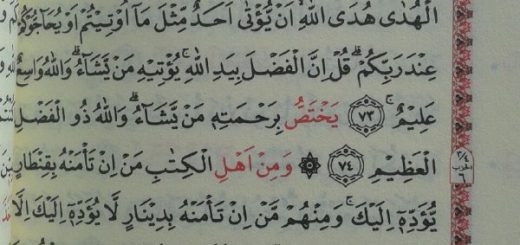 الْهُدٰى هُدَى اللّٰهِ اَنْ يُّؤْتٰىٓ اَحَدٌ مِّثْلَ مَآ اُوْتِيْتُمْ اَوْ يُحَاۤجُّوْكُمْ
عِنْدَ رَبِّكُمْ ۗ قُلْ اِنَّ الْفَضْلَ بِيَدِ اللّٰهِ ۚ يُؤْتِيْهِ مَنْ يَّشَاۤءُ ۗ وَاللّٰهُ وَاسِعٌ
عَلِيْمٌ ۚ ﴿٧٣﴾ يَخْتَصُّ بِرَحْمَتِهٖ مَنْ يَّشَاۤءُ ۗ وَاللّٰهُ ذُو الْفَضْلِ
الْعَظِيْمِ ﴿٧٤﴾ ۞ وَمِنْ اَهْلِ الْكِتٰبِ مَنْ اِنْ تَأْمَنْهُ بِقِنْطَارٍ
يُّؤَدِّهٖٓ اِلَيْكَ ۚ وَمِنْهُمْ مَّنْ اِنْ تَأْمَنْهُ بِدِيْنَارٍ لَّا يُؤَدِّهٖٓ اِلَيْكَ اِلَّا